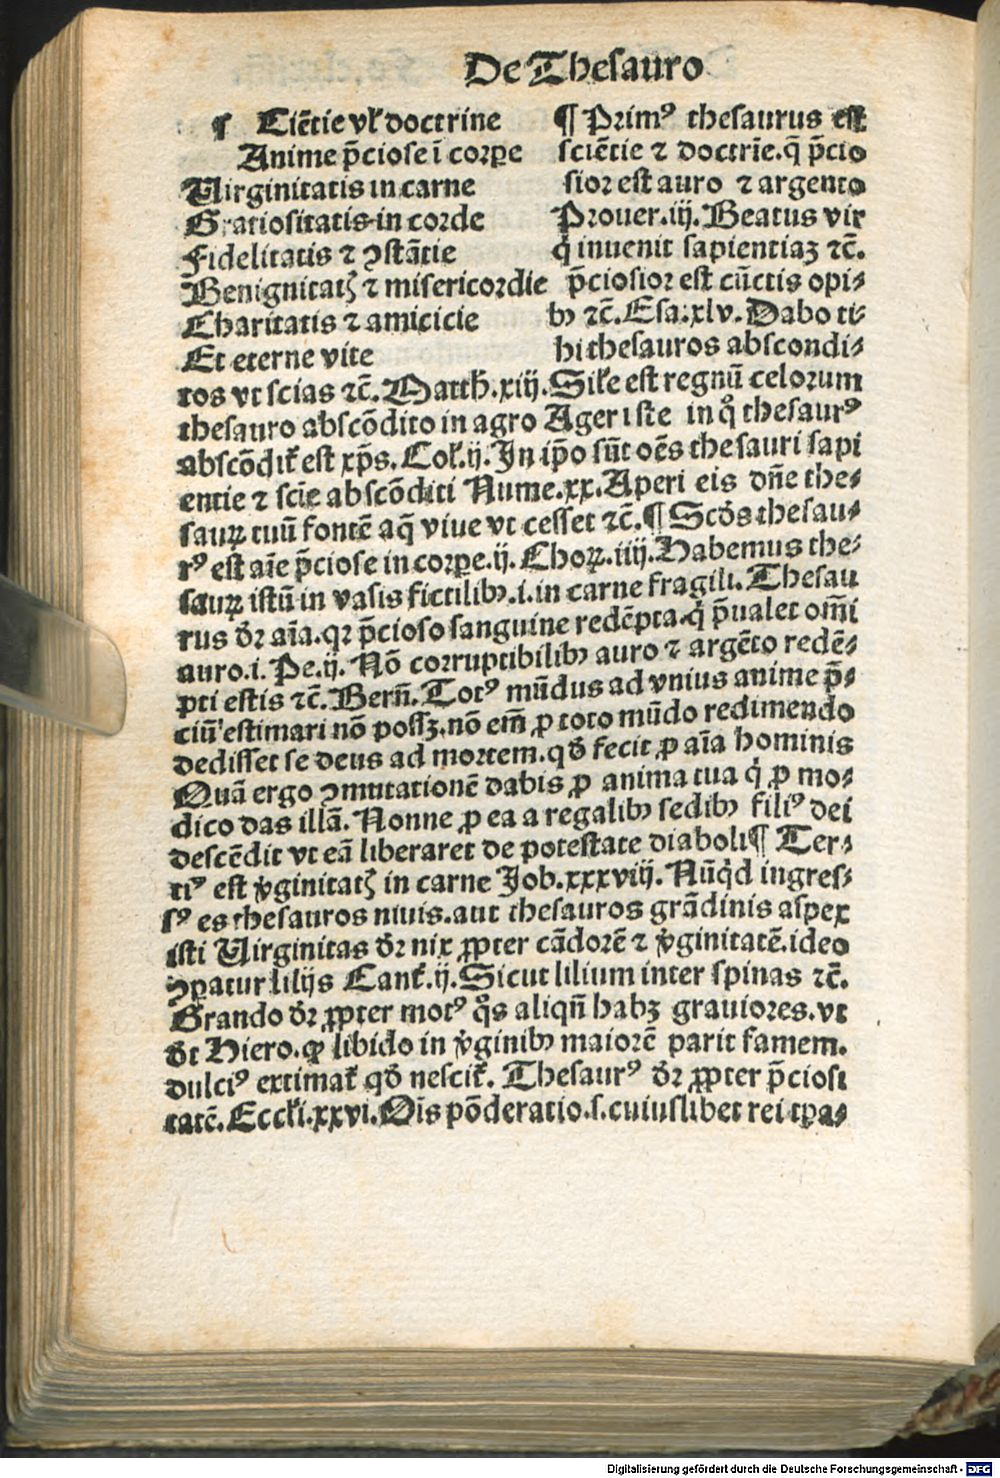 De Thesauro
¶ Ciẽtie vł doctrine
Anime p̃ciose ĩ corꝑe
Uirginitatis in carne
Gratiositatis in corde
Fidelitatis ⁊ ꝯstãtie
Benignitatꝭ ⁊ misericordie
Charitatis ⁊ amicicie
Et eterne vite
¶ Primꝰ thesaurus est
sciẽtie ⁊ doctrĩe. q̃ p̃cio
sior est auro ⁊ argento
Prouer. iij. Beatus vir
q̇ inuenit sapientiaꝫ ⁊c̃.
p̃ciosior est cũctis opi⸗
bꝫ ⁊c̃. Esa. xlv. Dabo ti⸗
bi thesauros abscondi⸗
tos vt scias ⁊c̃. Matth̃. xiij. Sil̕e est regnũ celorum
thesauro abscõdito in agro Ager iste in q̊ thesaurꝰ
abscõdit̕ est xp̃s. Col̕. ij. In ip̃o sũt oẽs thesauri sapi
entie ⁊ sciẽ absconditi Nume. xx. Aperi eis dñe the⸗
sauꝝ tuũ fontẽ aq̃ viue vt cesset ⁊c̃. ¶ Scd̕s thesau⸗
rꝰ est aĩe p̃ciose in corꝑe. ij. Choꝝ. iiij. Habemus the⸗
sauꝝ istũ in vasis fictilibꝫ. i. in carne fragili. Thesau
rus dr̕ aĩa. qꝛ p̃cioso sanguine redẽpta. q̇ p̃ualet om̃i
auro. i. Pe. ij. Nõ corruptibilibꝫ auro ⁊ argẽto redẽ⸗
pti estis ⁊c̃. Bern̄. Totꝰ mũdus ad vnius anime p̃⸗
ciũ estimari nõ possꝫ. nõ em̃ ꝓ toto mũdo redimendo
dedisset se deus ad mortem. qd̕ fecit ꝓ aĩa hominis
Quã ergo ꝯmutationẽ dabis ꝓ anima tua q̇ ꝓ mo⸗
dico das illã. Nonne ꝓ ea a regalibꝫ sedibꝫ filiꝰ dei
descẽdit vt eã liberaret de potestate diaboli ¶ Ter⸗
tiꝰ est v̕ginitatꝭ in carne Job. xxxviij. Nũq̇d ingres⸗
sꝰ es thesauros niuis. aut thesauros grãdinis aspex
isti Uirginitas dr̕ nix ꝓpter cãdorẽ ⁊ v̕ginitatẽ. ideo
ꝯꝑatur lilijs Cant̕. ij. Sicut lilium inter spinas ⁊c̃.
Grando dr̕ ꝓpter motꝰ q̊s aliqñ habꝫ grauiores. vt
dt̕ Hiero. ꝙ libido in v̕ginibꝫ maiorẽ parit famem.
dulciꝰ extimat̕ qd̕ nescit̕. Thesaurꝰ dr̕ ꝓpter p̃ciosi
tatẽ. Eccl̕i. xxvi. Ois põderatio. s. cuiuslibet rei tꝑa⸗
Digitalisierung gefördert durch die Deutsche Forschungsgemeinschaft - DFG